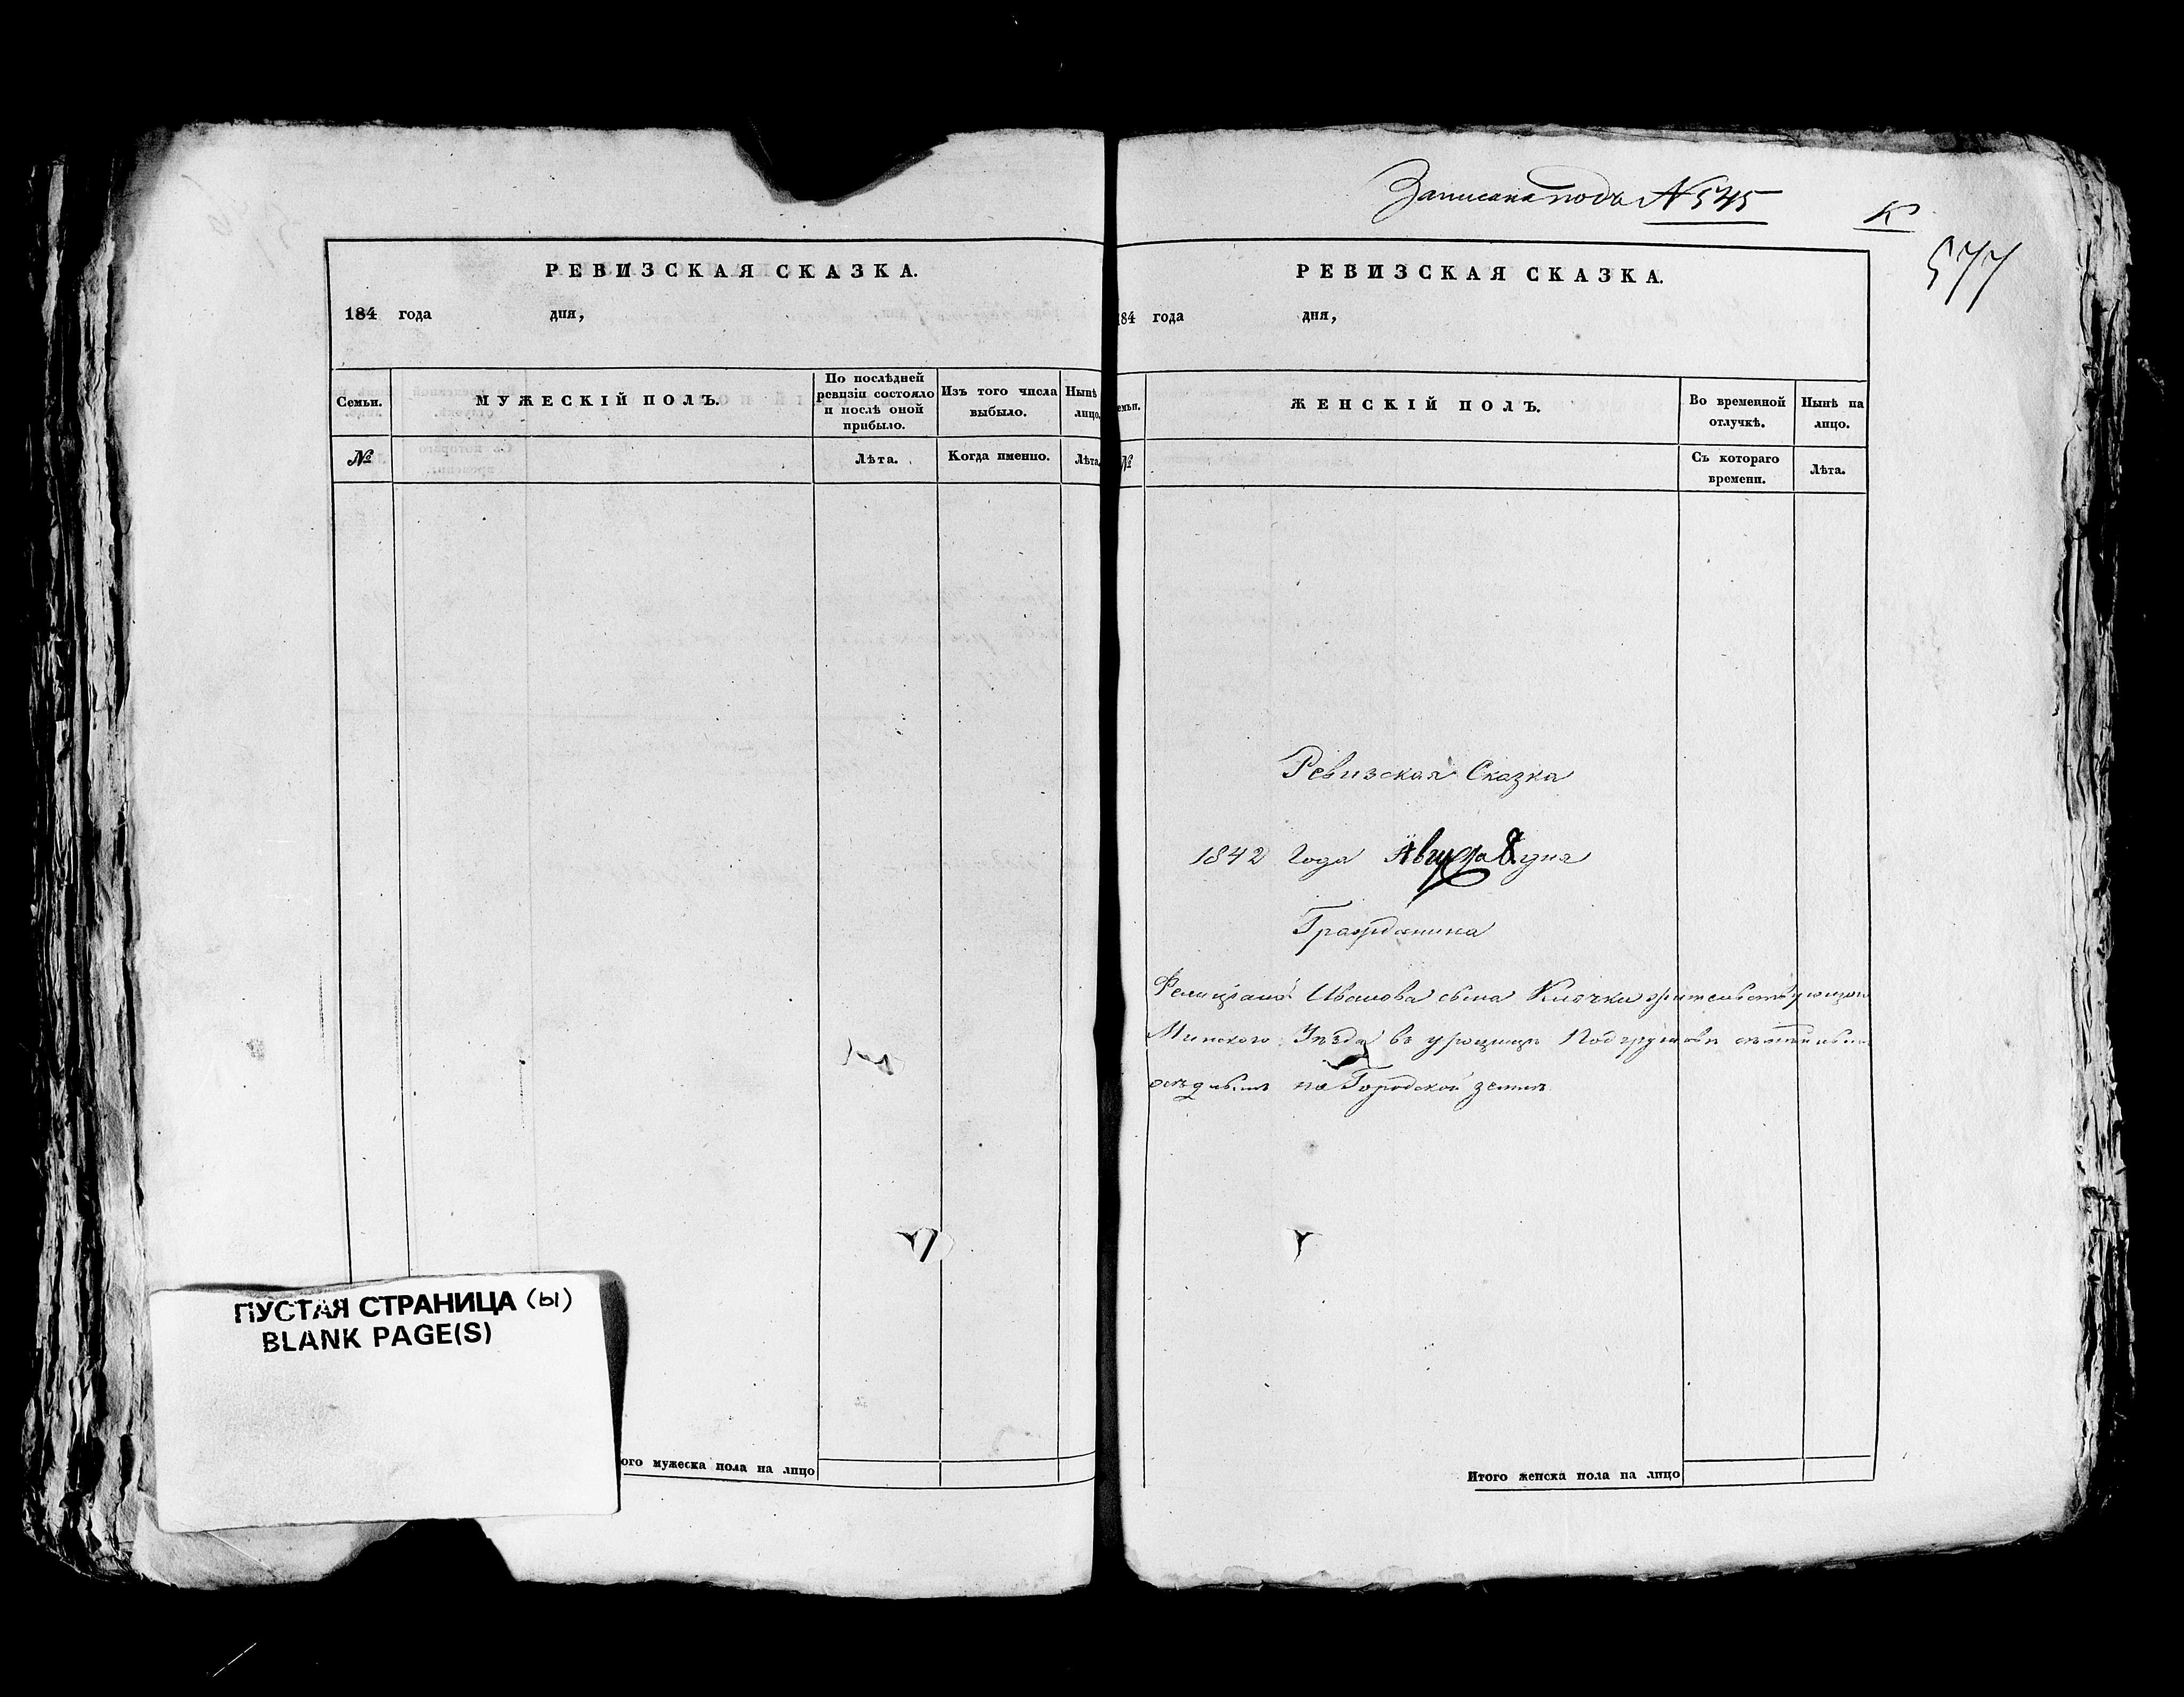 РЕВИЗСКАЯ СКАЗКА.
184 года дня,
Семьи.
МУЖЕСКІЙ ПОЛЪ.
По послѣдней ревизіи состояло и послѣ оной прибыло.
Изъ того числа выбыло.
Нынѣ лицо.
№
Лѣта.
Когда именно.
Лѣта.
ПУСТАЯ СТРАНИЦА (ы)
BLANK PAGE(S)
ого мужеска пола на лицо
Записана подъ N 545
К
577
РЕВИЗСКАЯ СКАЗКА.
184 года дня,
емьи.
ЖЕНСКІЙ ПОЛЪ.
Во временной отлучкѣ.
Нынѣ на лицо.
№
Съ котораго времени.
Лѣта.
Ревизская Сказка
1842 Года Августа 8 дня
Гражданина
Фелиціана Иванова сына Клочки жительствующаго
Минскаго Уѣзда въ урочищѣ
осѣдлымъ на Городской землѣ
Итого женска пола на лицо